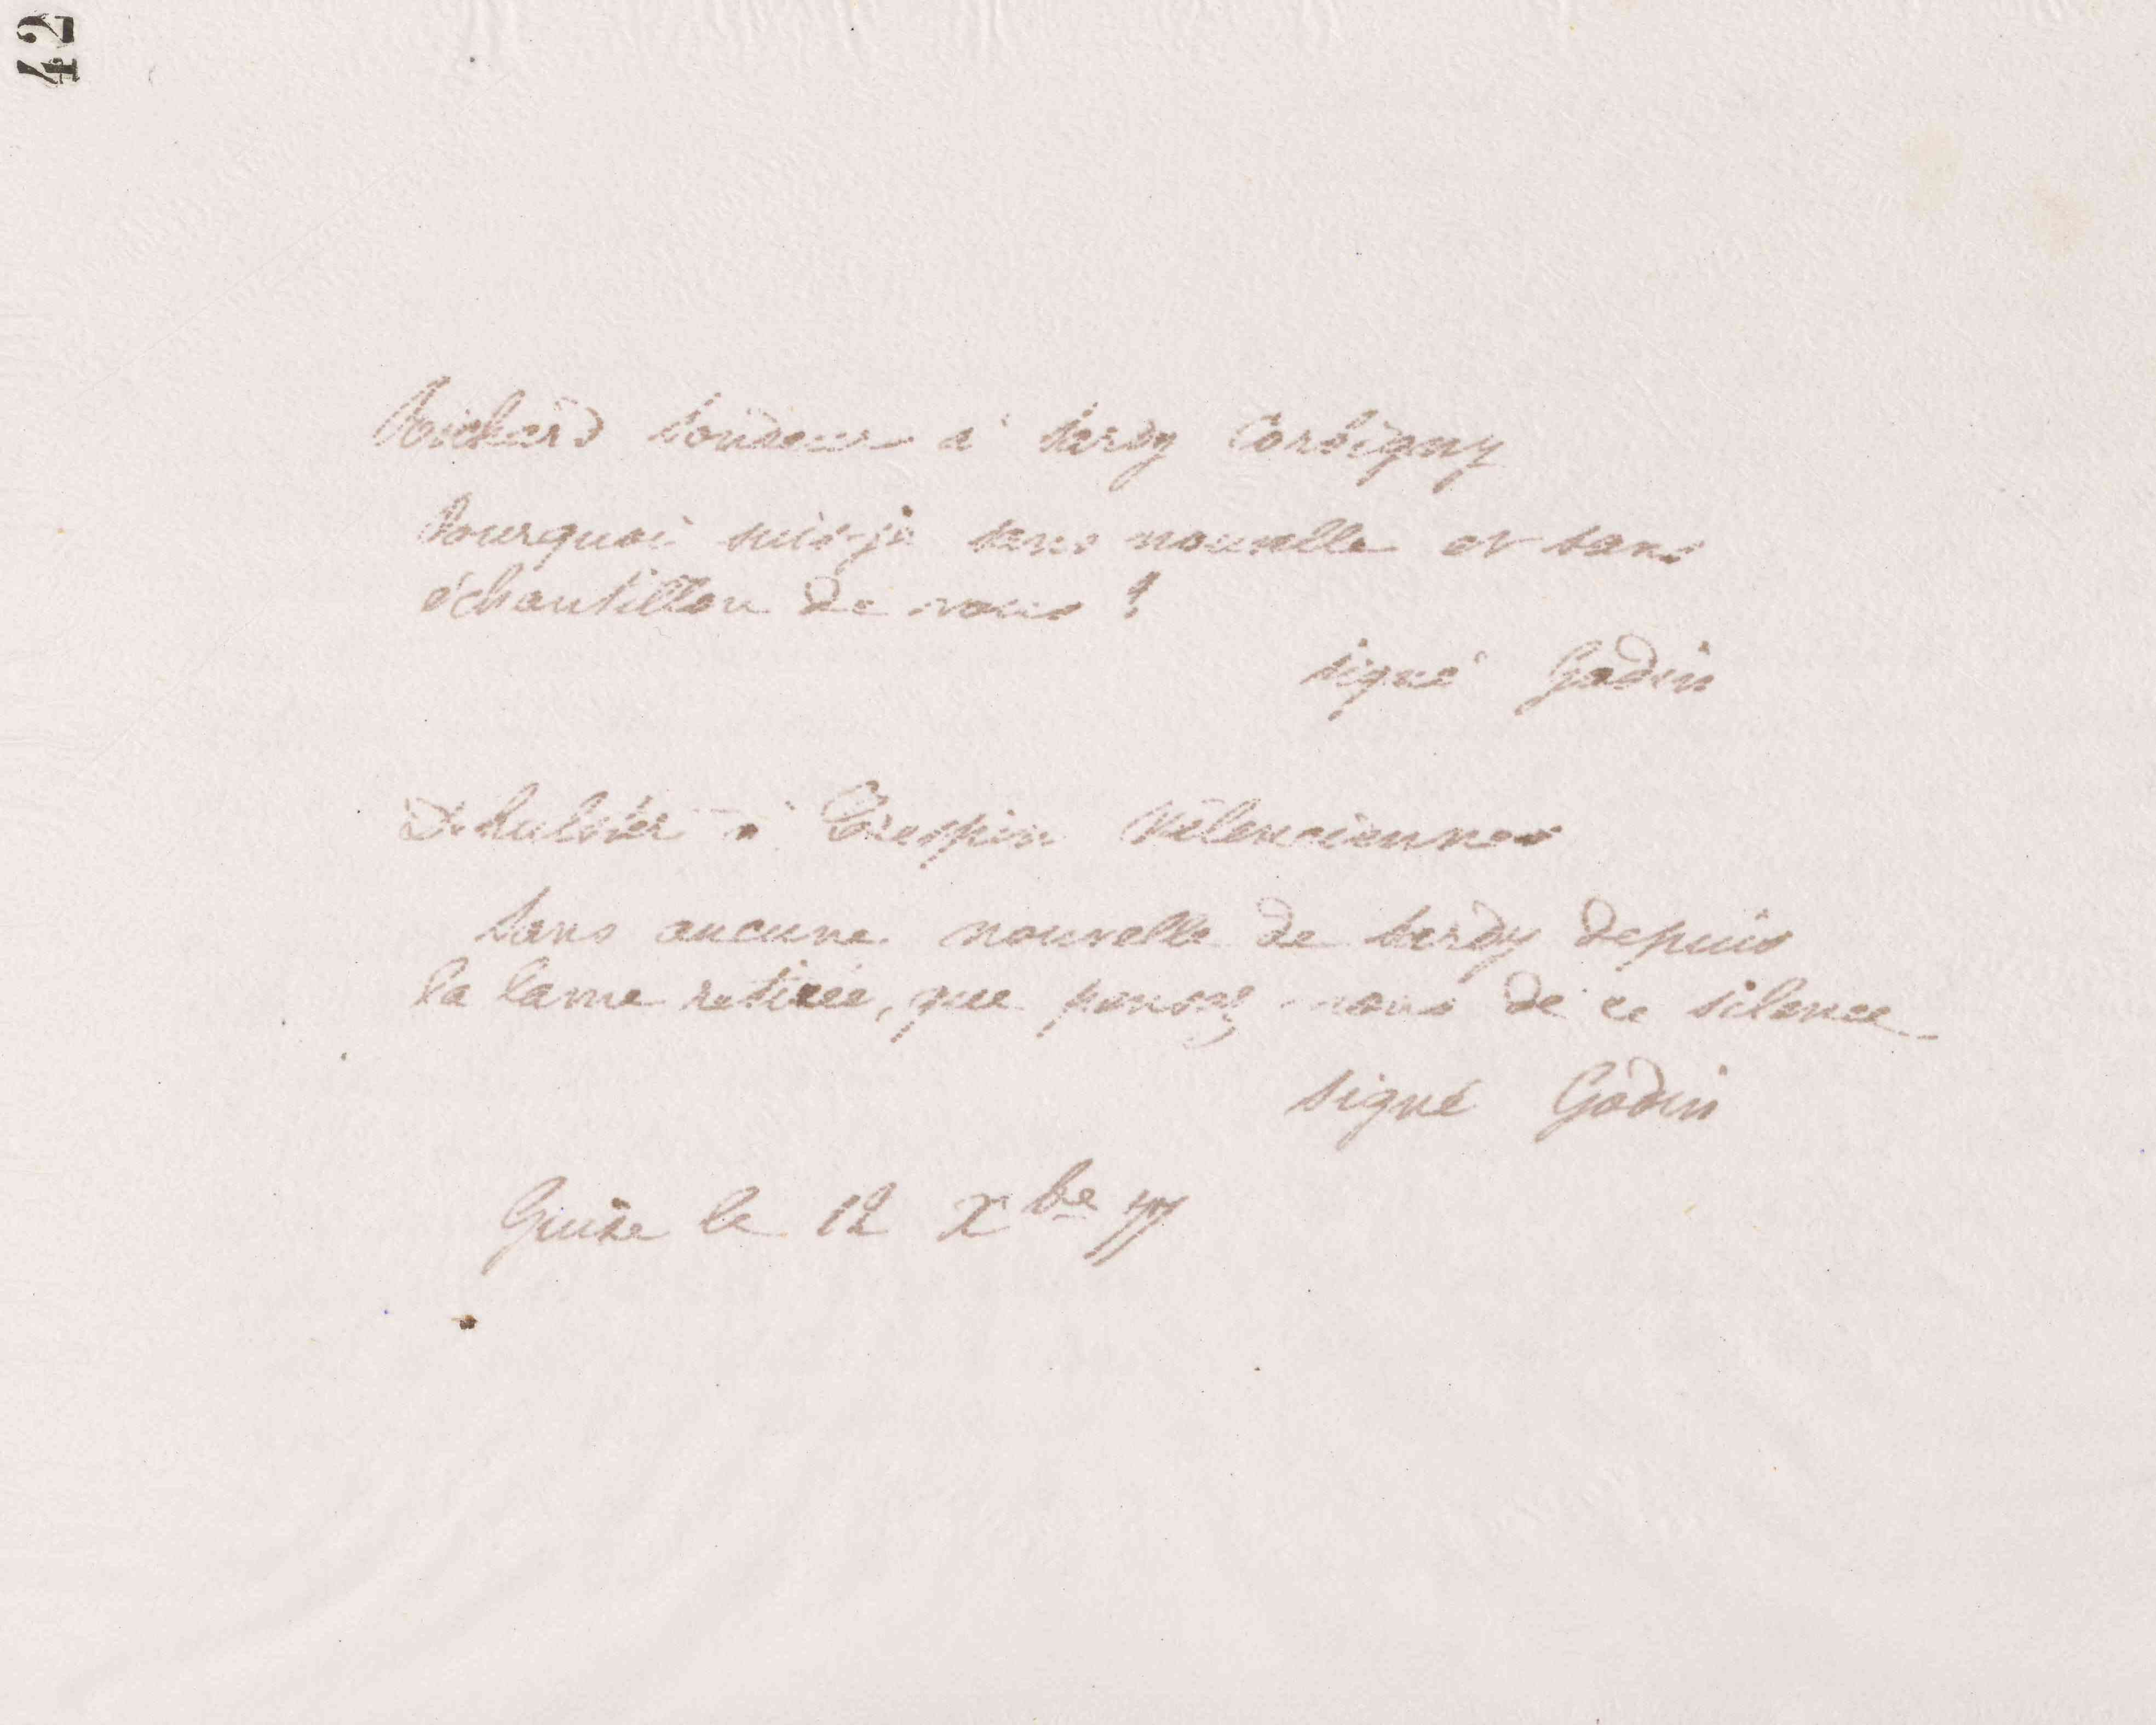 42
Richard Sondeur à Sardy Corbigny
Pourquoi suis-je sans nouvelle et sans
échantillon de vous ?
signé Godin
Dehulster à Crespin Valenciennes
Sans aucune nouvelle de Sardy depuis
la lame retirée, que pensez-vous de ce silence
signé Godin
Guise le 12 Xbre 77